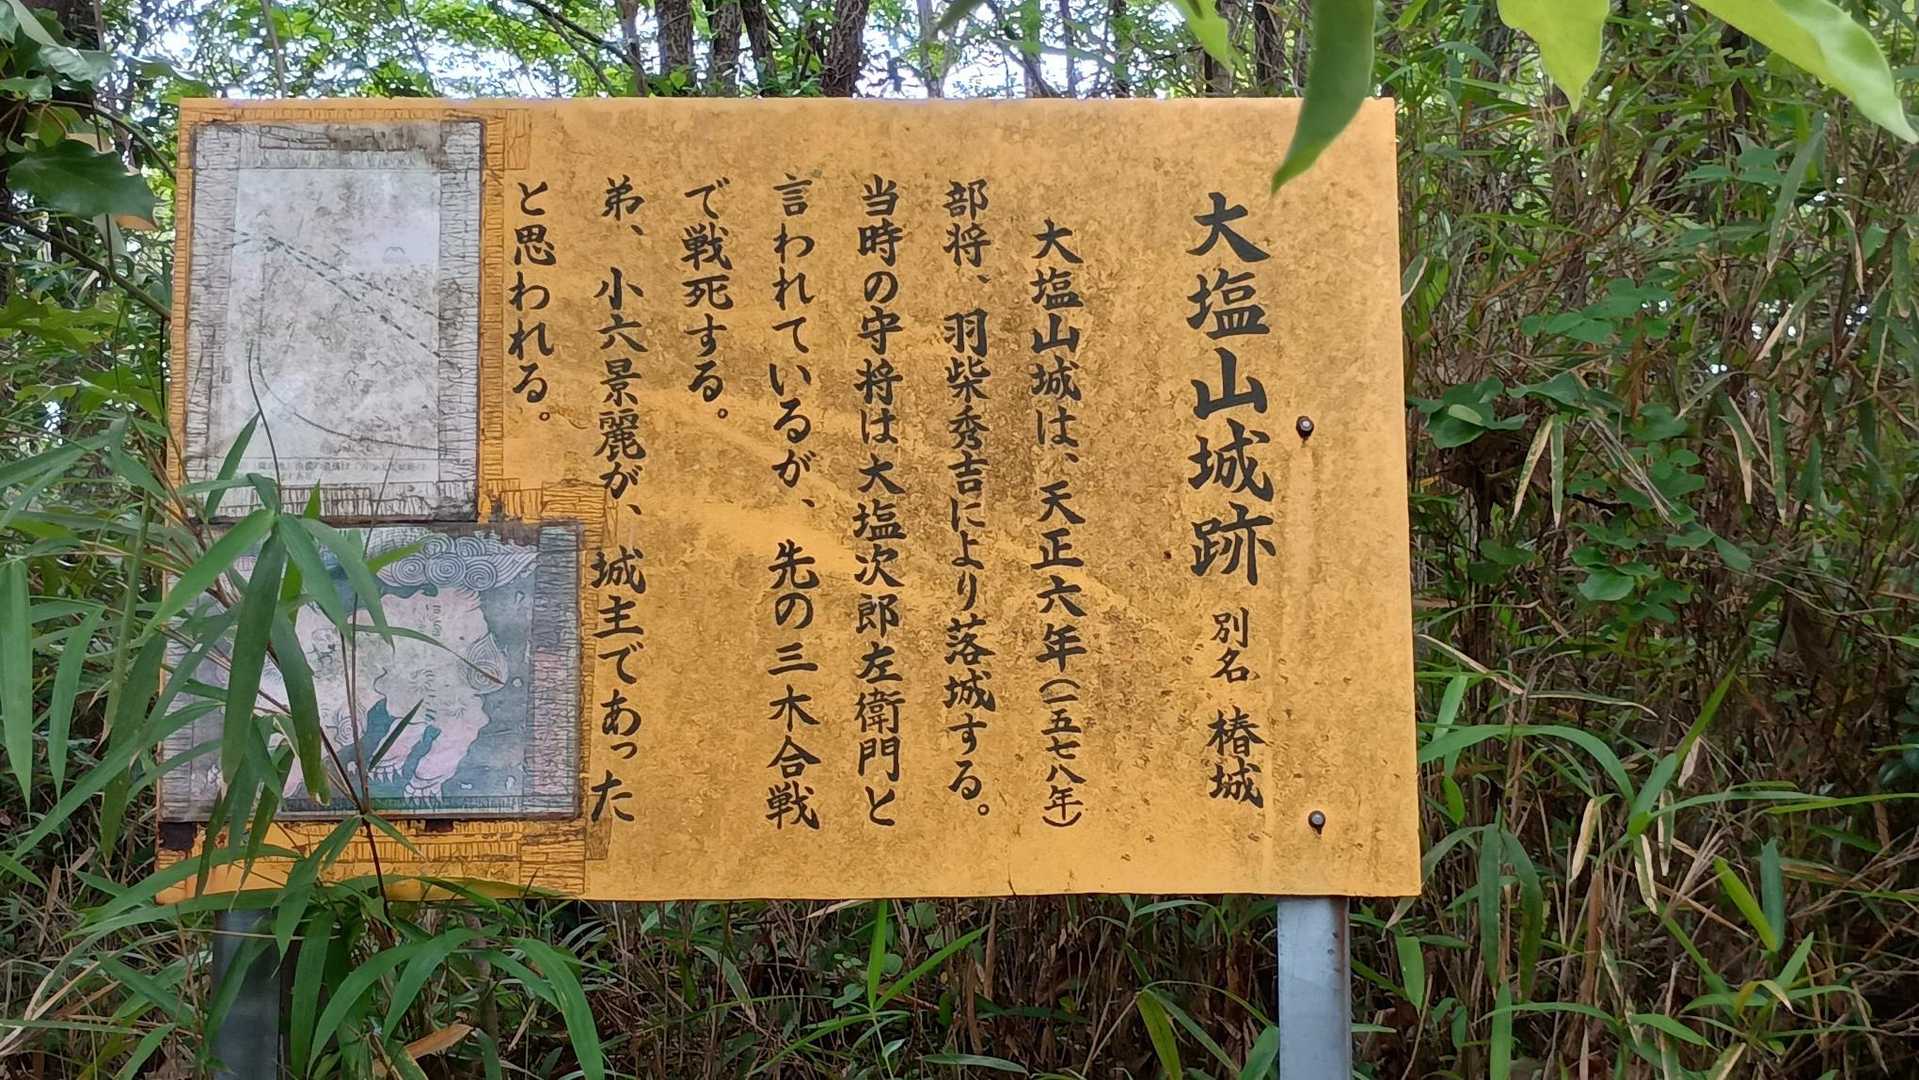 大塩山城跡 別名 椿城
大塩山城は、天正六年（一五七八年）
部将、羽柴秀吉により落城する。
当時の守将は大塩次郎左衛門と
言われているが、先の三木合戦
で戦死する。
弟、小六景麗が、城主であった
と思われる。